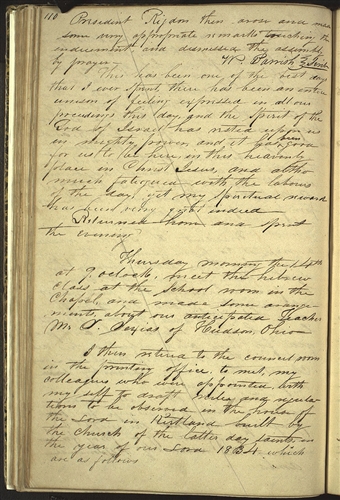 110
President Rigdon then arose and made
some very appropriate remarks touching the
endument and dismissed the assembly
by prayer— W. Parrish Scribe
This has been one of the best days
that I ever spent, there has been an entire
unison of feeling expressed in all our
proceedings this day, and the Spirit of the
God of Israel has rested upon us
in mighty power, and it has been good
for us to be here, in this heavenly
place in Christ Jesus, and altho
much fatiegued with the labours
of the day, yet my spiritual reward
has been very great indeed
Returned home and spent
the evening
Thursday morning the 14th
at 9 oclock, meet the hebrew
class at the school room in the
Chapel, and made some arange-
ments, about our anticipated Teacher
Mr. J. Seixas of Hudson, Ohio—
I then retired to the council room
in the printing office, to meet, my
colleagues who were appointed, with
my self to draft rules and regula-
tions to be observed in the house of
the Lord in Kirtland built by
the Church of the latter day saints, in
the year of our Lord 1834 which
are as follows